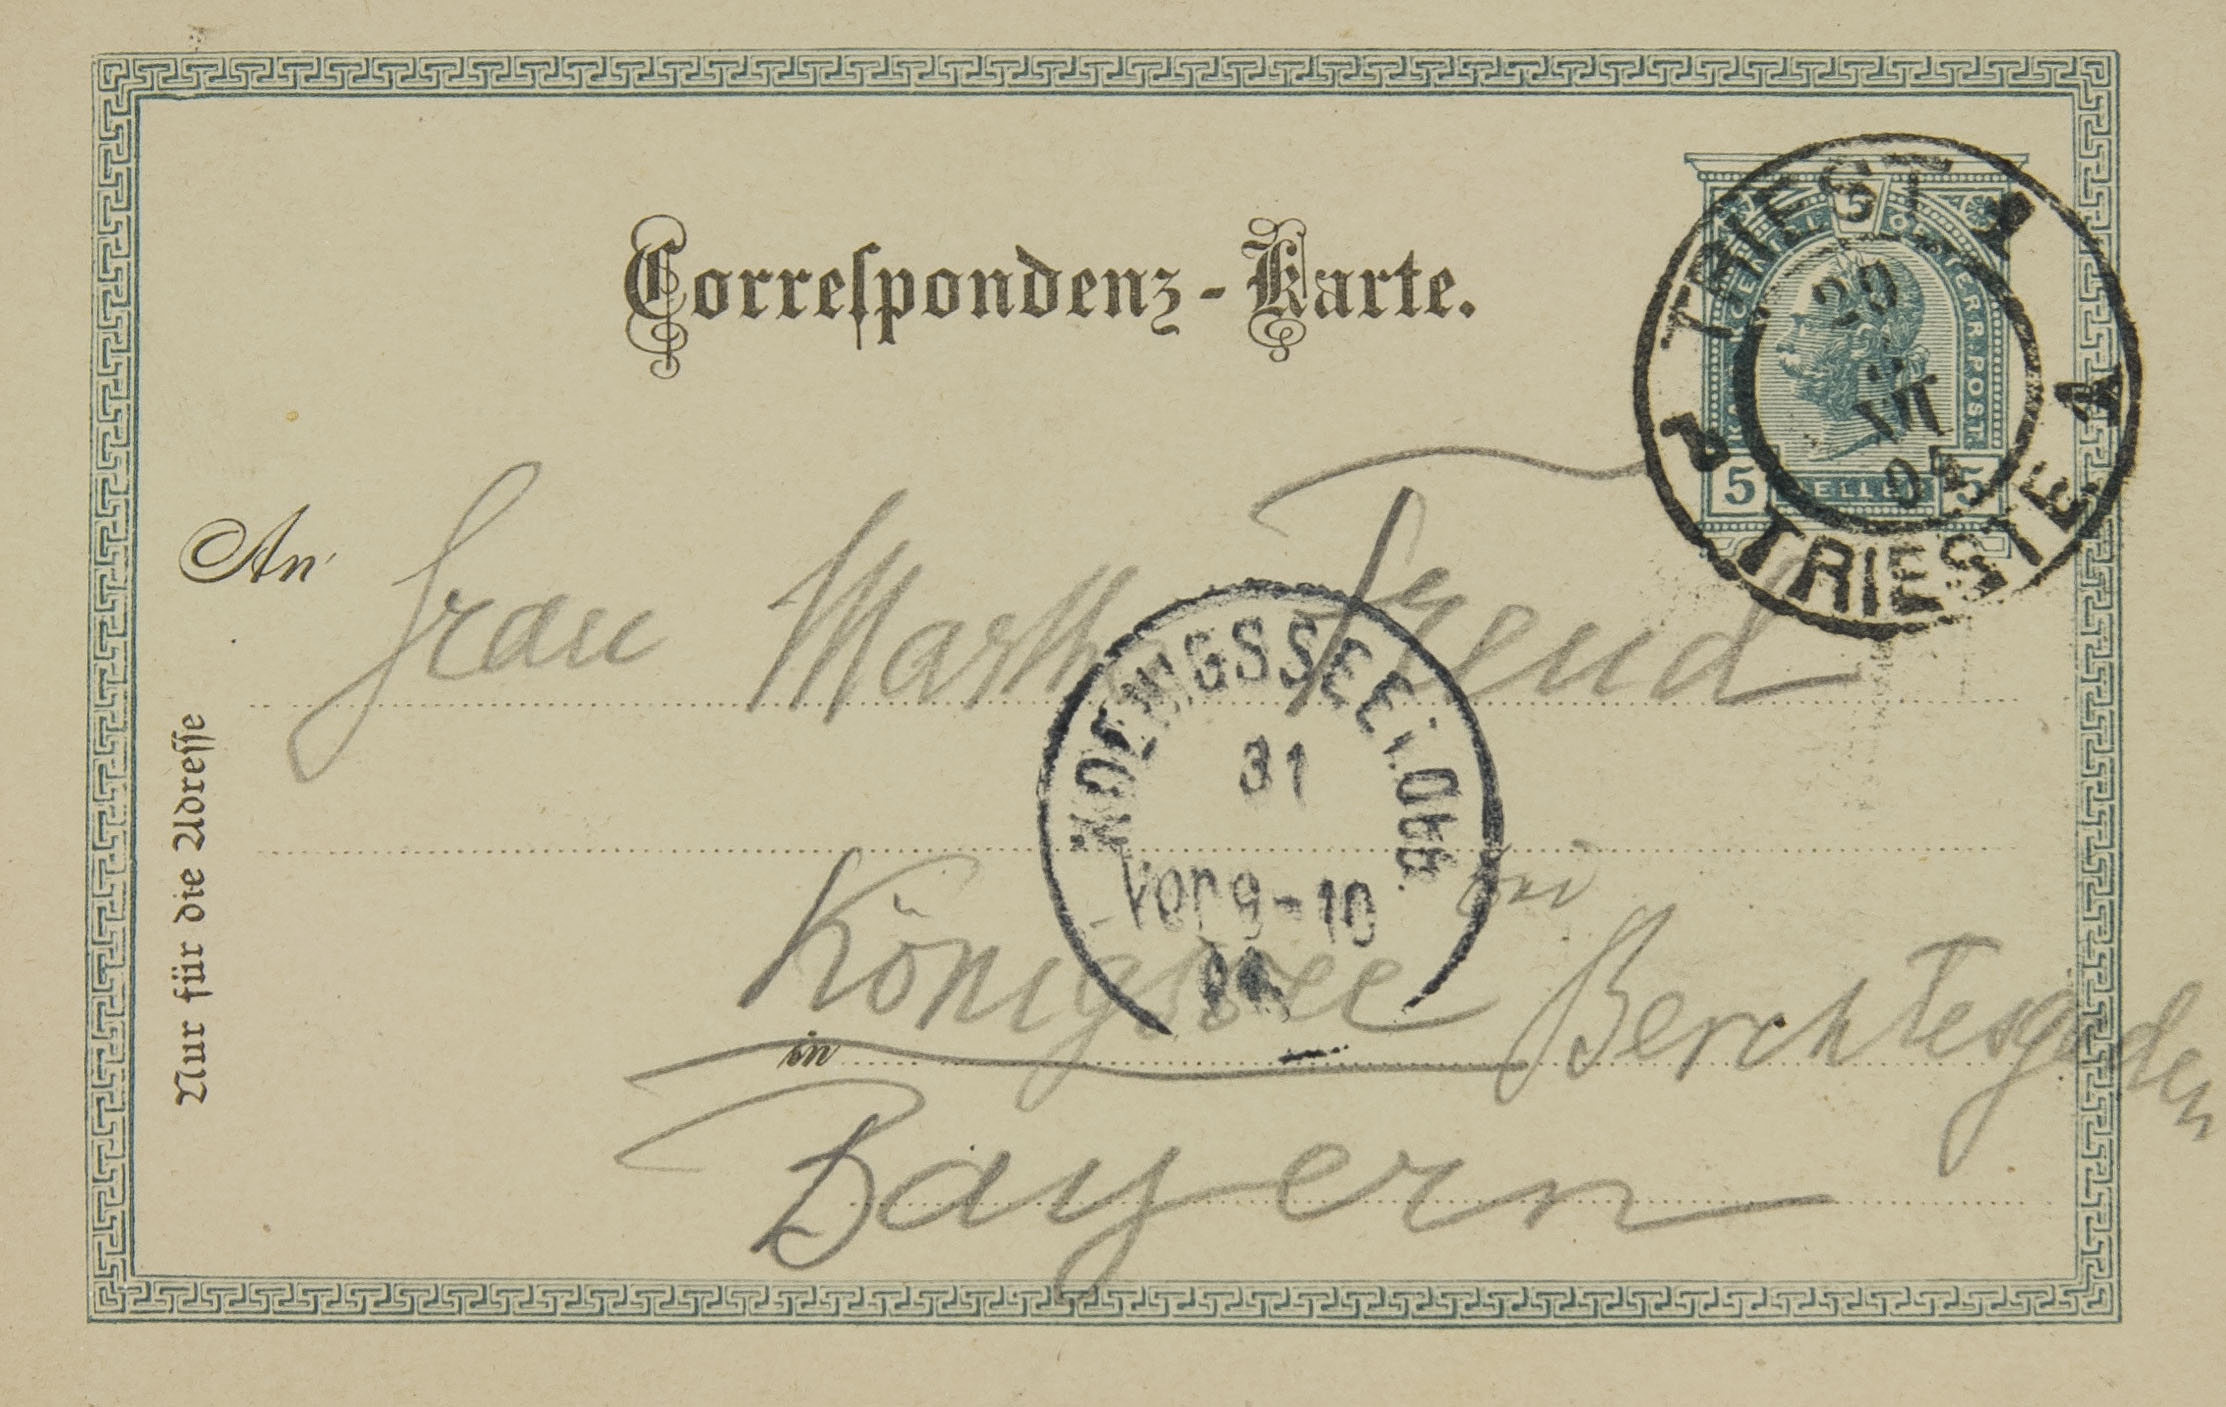 Correſpondenz-Karte.
KAISERL. KÖNIGL. OESTERR. POST.
5 HELLER 5
TRIEST 1
TRIESTE 1
VIII
An
Frau Martha Freud
KOENIGSSEE i. OBB.
31
Vor 9-10
Königssee bei Berchtesgaden
in
Bayern
Nur für die Adreſſe